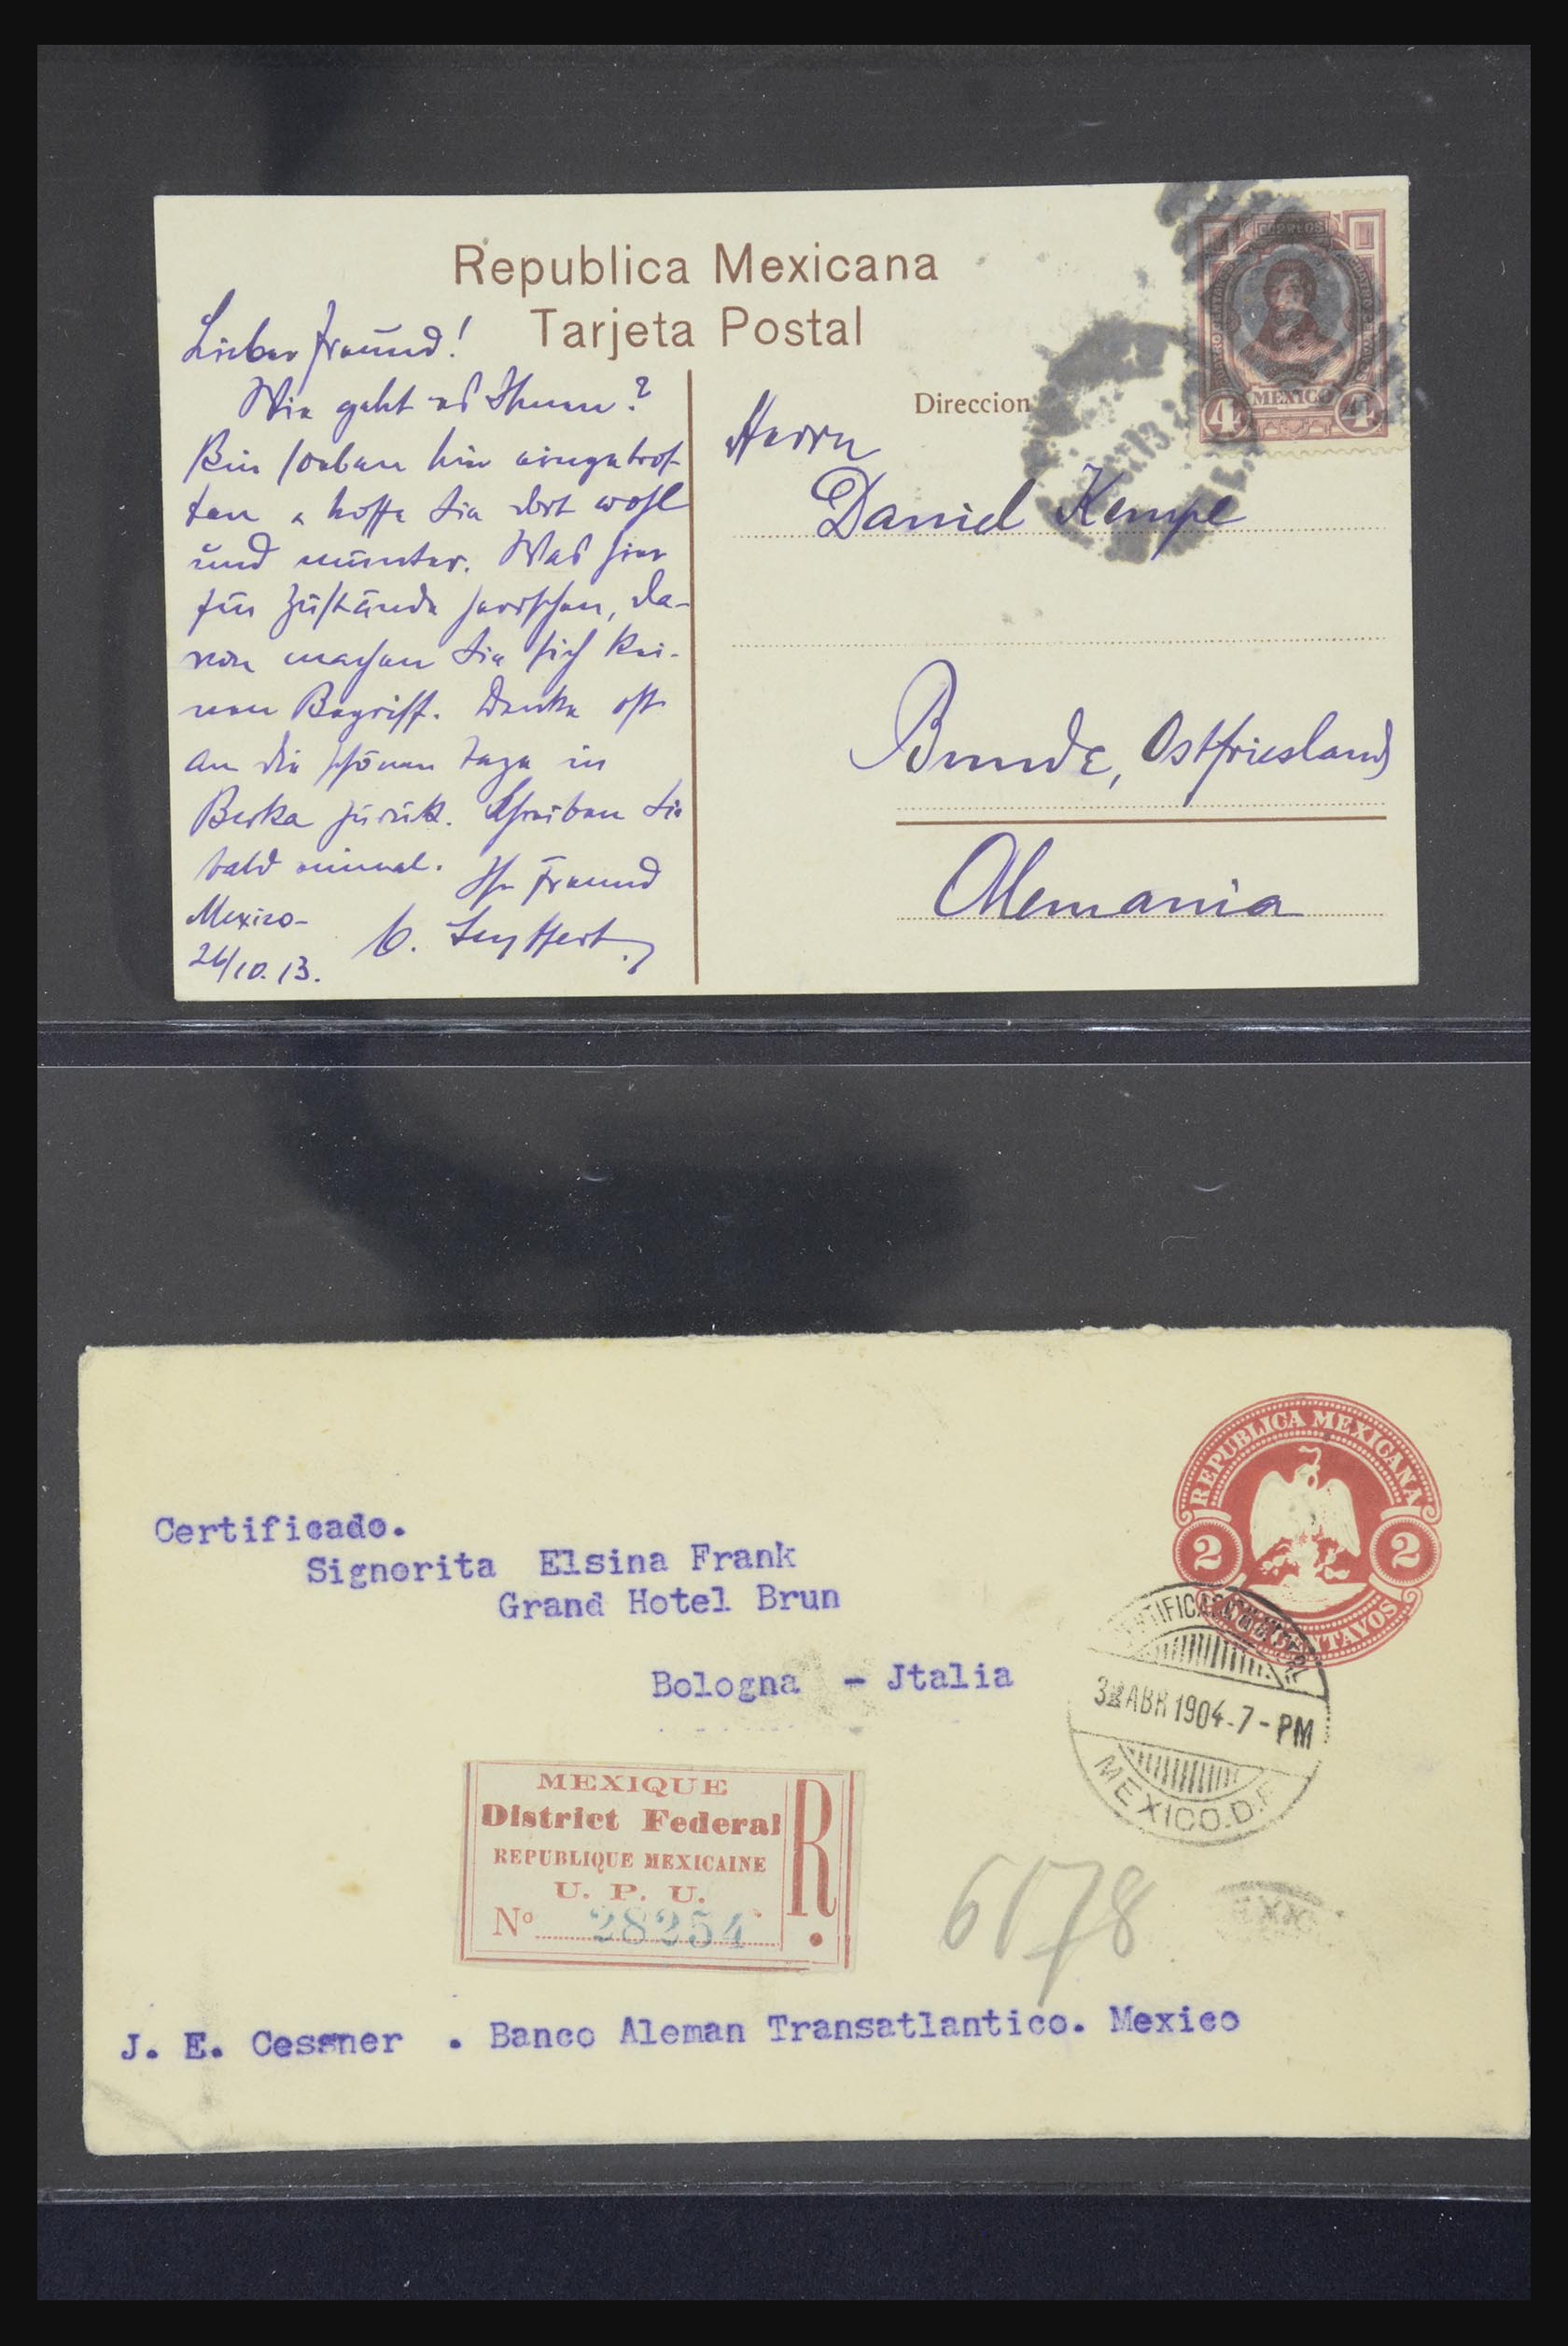 Republica Mexicana
Tarjeta Postal
CORREOS
MEXICO
4 4
Direccion
Lieber Freund!
Wie geht es Ihnen?
Bin soeben hier eingetrof-
fen & hoffe Sie dort wohl
und munter. Was hier
für Zustände herrschen, da-
von machen Sie sich kei-
nen Begriff. Denke oft
an die schönen Tage in
Berka zurück. Schreiben Sie
bald einmal. Ihr Freund
Mexico-
26/10.13.
Seyffert
Herrn
Daniel Kempe
Bunde, Ostfriesland
Alemania
REPUBLICA MEXICANA
2 2
CENTAVOS
Certificado.
Signorita Elsina Frank
Grand Hotel Brun
Bologna - Jtalia
ABR 1904-7-PM
MEXICO.D.F.
MEXIQUE
District Federal
REPUBLIQUE MEXICAINE
U. P. U.
No 28254
R.
6178
J. E. Cessner . Banco Aleman Transatlantico. Mexico